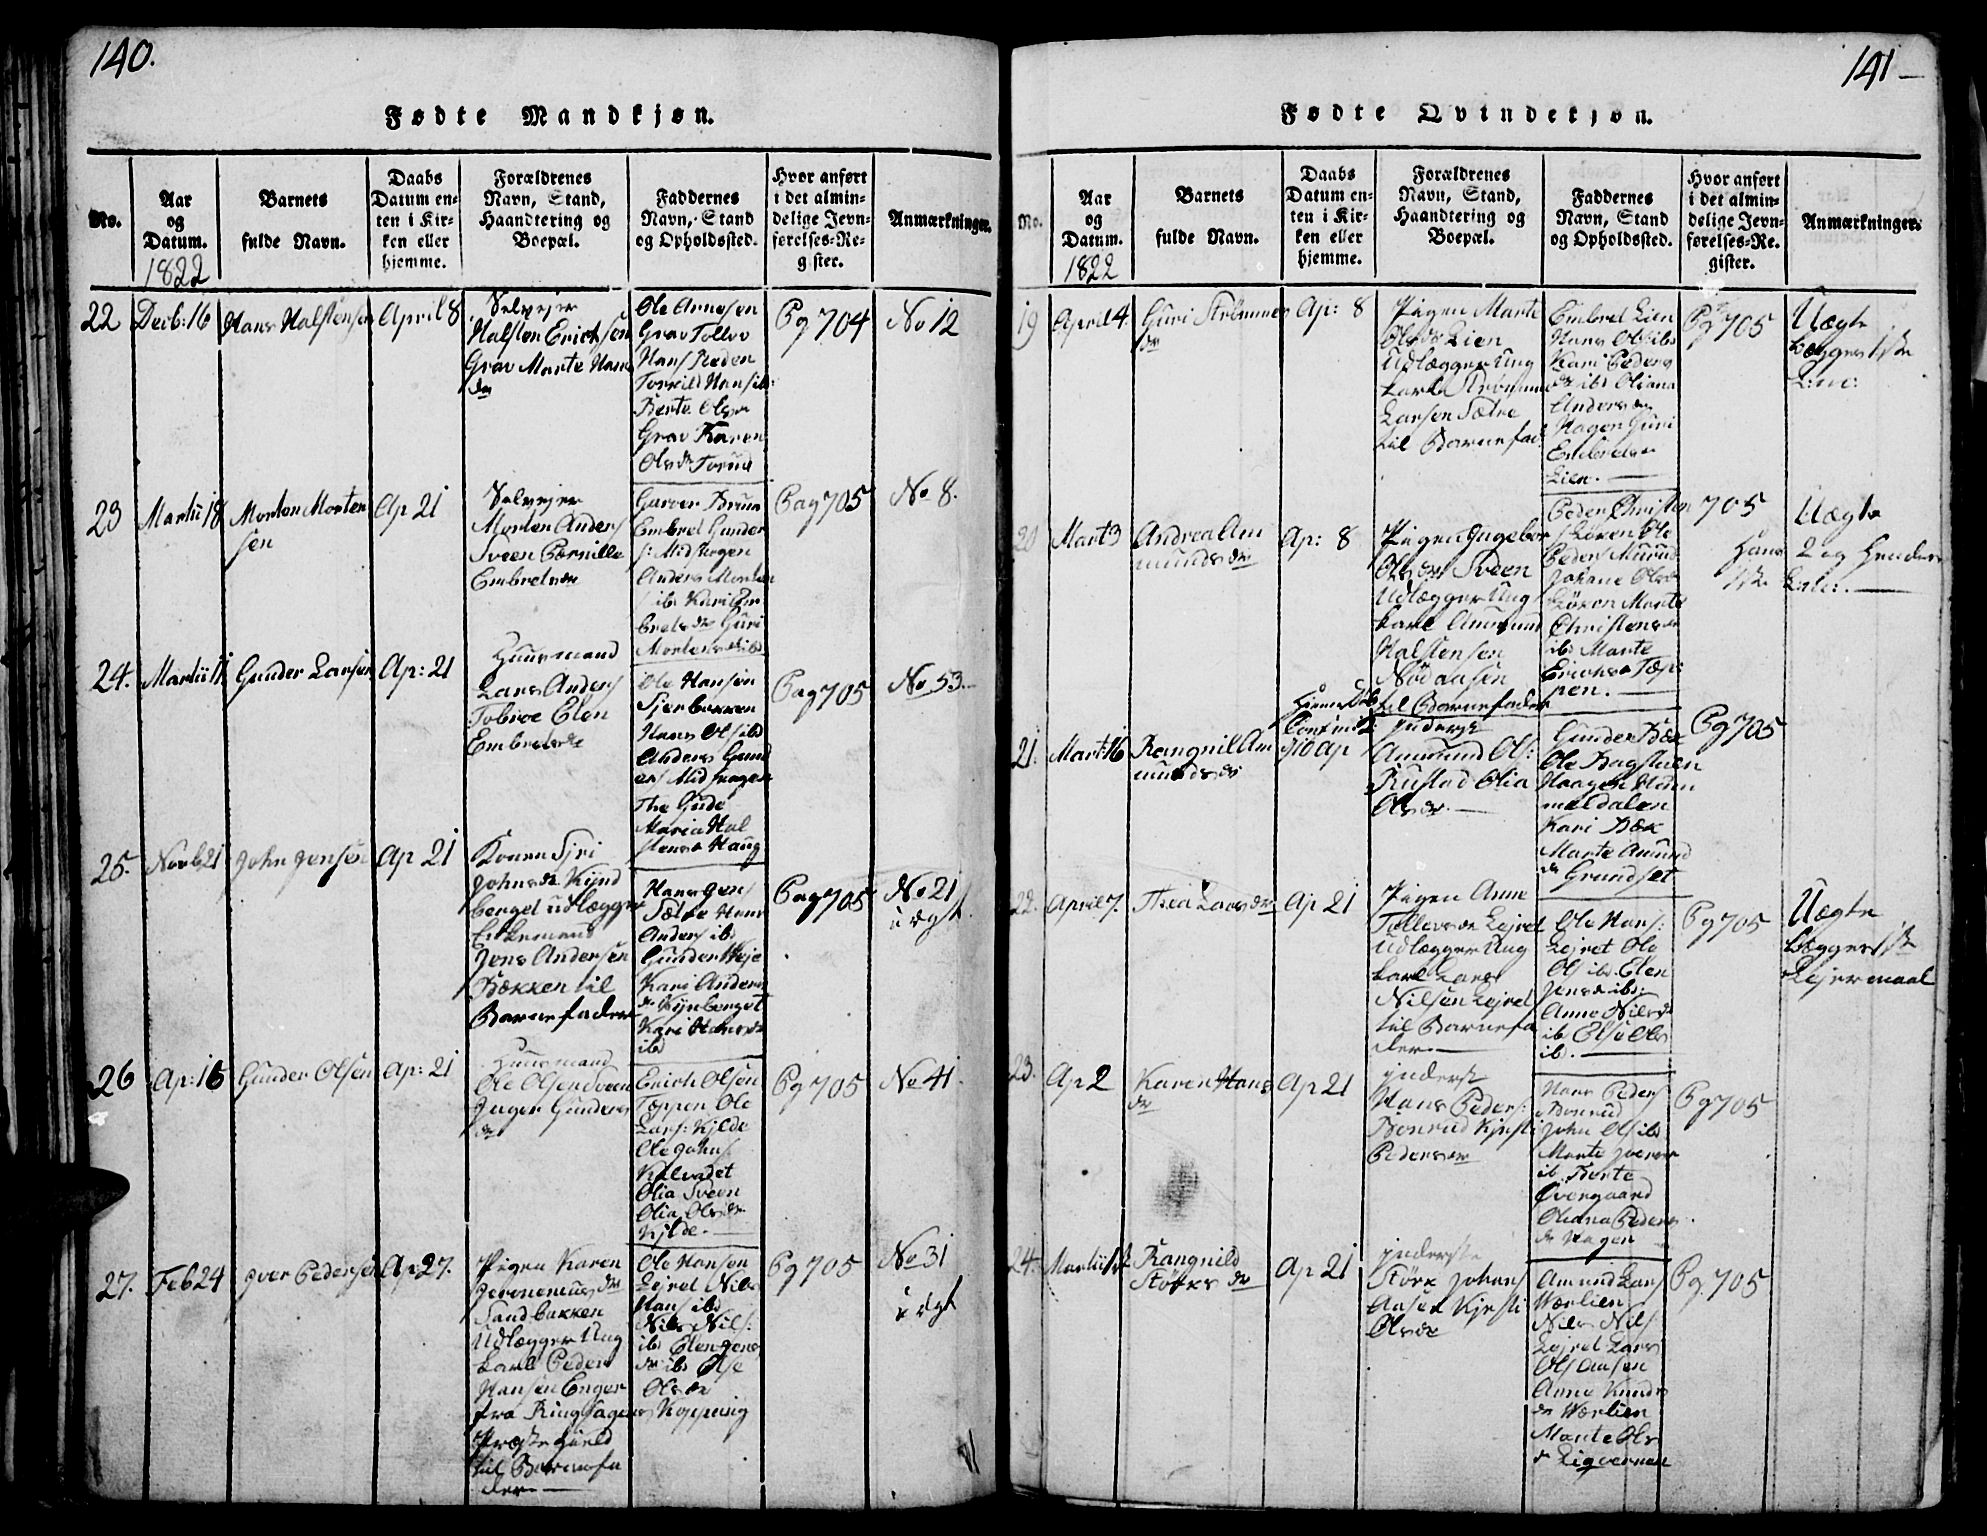 140.
Fødte Mandkjøn.
No.
Aar
og
Datum.
1822
Barnets
fulde Navn.
Daabs
Datum en-
ten i Kir-
ken eller
hjemme.
Forældrenes
Navn, Stand,
Haandtering og
Boepæl.
Faddernes
Navn, Stand
og Opholdssted.
Hvor anført
i det almin-
delige Jevn-
førelses-Re-
gister.
Anmærkninger.
22
Decb: 16
Hans Halstensen
April 8
Selvejer
Halsten Erichsen
Grav Marte Hans
dr
Ole Arnesen
Grav Tollov
Hans
Torrild Hans ibd:
Berte Olsdr
Grav Karen
Olsdr Torud
Pg 704
No 12
23
Martii 18
Morten Morten
sen
Ap 21
Selvejer
Morten Anders
Sveen Pernille
Embretsdr
Garver Bruun
Embret Gunder
s: Midskogen
Anders Morten
s ibd Kari Em
bretsdr Guri
Mortensdr ibd
Pag 705
No 8.
24.
Martii 11
Gunder Larsen
Ap: 21
Huusmand
Lars Anders
Tobroe Elen
Embretsdr
Ole Hansen
Sjerbakken
Hans Ols ibd
Anders Gund
ers Midskogen
The Gude
Maria Hal
stensdr Haug
Pag 705
No 53.
25.
Novb 21
John Jensen
Ap 21
Konen Siri
Johnsdr Kynd
berget udlægger
Enkemand
Jens Andersen
Bækken til
Barnefader
Hans Jens
Sætre Hans
Anders ibd
Gunder Weje
Kari Anders
dr Kynberget
Kari Hansdr
ibd
Pag 705
No 21
uægt.
26
Ap: 16
Gunder Olsen
Ap: 21
Huusmand
Ole Olsen Sveen
Inger Gunders
dr
Erich Olsen
Tæppen Ole
Lars: Kilde
Ole Johns
Kalvadet
Olia Sveen
Olia Olsdr
Kilde.
Pg 705
No 41.
27.
Feb 24
Iver Pedersen
Ap 27.
Pigen Karen
Jeronemusdr
Sandbakken
Udlægger Ung
karl Peder
Hansen Enger
fra Ringsager
Præstegjeld
til Barnefa
der
Ole Hansen
Lejret Nils
Hans ibd
Nils Nils:
ibd Elen Jens
dr ibd Else
Olsdr
Kopperug
Pg 705
No 31
uægt
141
Fødte Qvindekjøn.
No.
Aar
og
Datum.
1822
Barnets
fulde Navn.
Daabs
Datum en-
ten i Kir-
ken eller
hjemme.
Forældrenes
Navn, Stand,
Haandtering og
Boepæl.
Faddernes
Navn, Stand
og Opholdssted.
Hvor anført
i det almin-
delige Jevn-
førelses-Re-
gister.
Anmærkninger.
19
April 4
Guri Strømmes
dr
Ap: 8
Pigen Marte
Olsdr Lien
Udlægger Ung
karl Strømme
Larsen Sætre
til Barnefad.
Embret Lien
Hans Ols ibd
Kari Peders
dr ibd Oliana
Andersdr
Hagen Guri
Embretsdr
Lien.
Pg 705
Uægte
begges 1ste
20
Mart 3
Andrea Am
mundsdr
Ap: 8
Pigen Ingebor
Olsdr Sveen
Udlægger Ung
karl Ammund
Halstensen
Nødaasen
til Barnefader
Peder Christen
s Løken Ole
Peders Muruud
Johane Olsdr
Løken Marte
Christensdr
ibd Marte
Erichsdr Tæp
pen.
705
Uægte
Hans 2 og Hendes
1ste
21.
Mart: 16
Rangnil Am
mundsdr
Hjemedøb
10 Ap
Inderst
Ammund Ols:
Rustad Olia
Olsdr.
Gunder Bæk
Ole Bagstuen
Haagen Ham
meldalen
Kari Bæk
Marte Amund
dr Grundset
Pg 705
22.
April 7.
Thea Larsdr
Ap 21
Pigen Anne
Tollevsdr Lejret
Udlægger Ung
karl Lars
Nilsen Lejret
til Barnefa
der
Ole Hans:
Lejret Ole
Ols ibd Elen
Jensdr ibd:
Anne Nilsdr
ib Else Ols
ib.
Pg 705
Uægte
begges 1ste
Lejermaal
23.
Ap 2
Karen Hans
dr
Ap 21
Inderst
Hans Peders:
Bonrud Kjersti
Pedersdr
Hans Peders
Bonrud
John Ols ibd
Marte Iversdr
ib Berte
Overgaard
Oliana Peders
dr Hagen
Pg 705
24.
Rangnild
Størksdr
Ap 21
Inderste
Størk Johans
Aasen Kjersti
Olsdr
Amund Lars
Wærlien
Nils Nils
Lejret Lars
Ols Aasen
Anne Knuds
dr Wærlien
Marte Ols
dr Ligvernen
Pg. 705